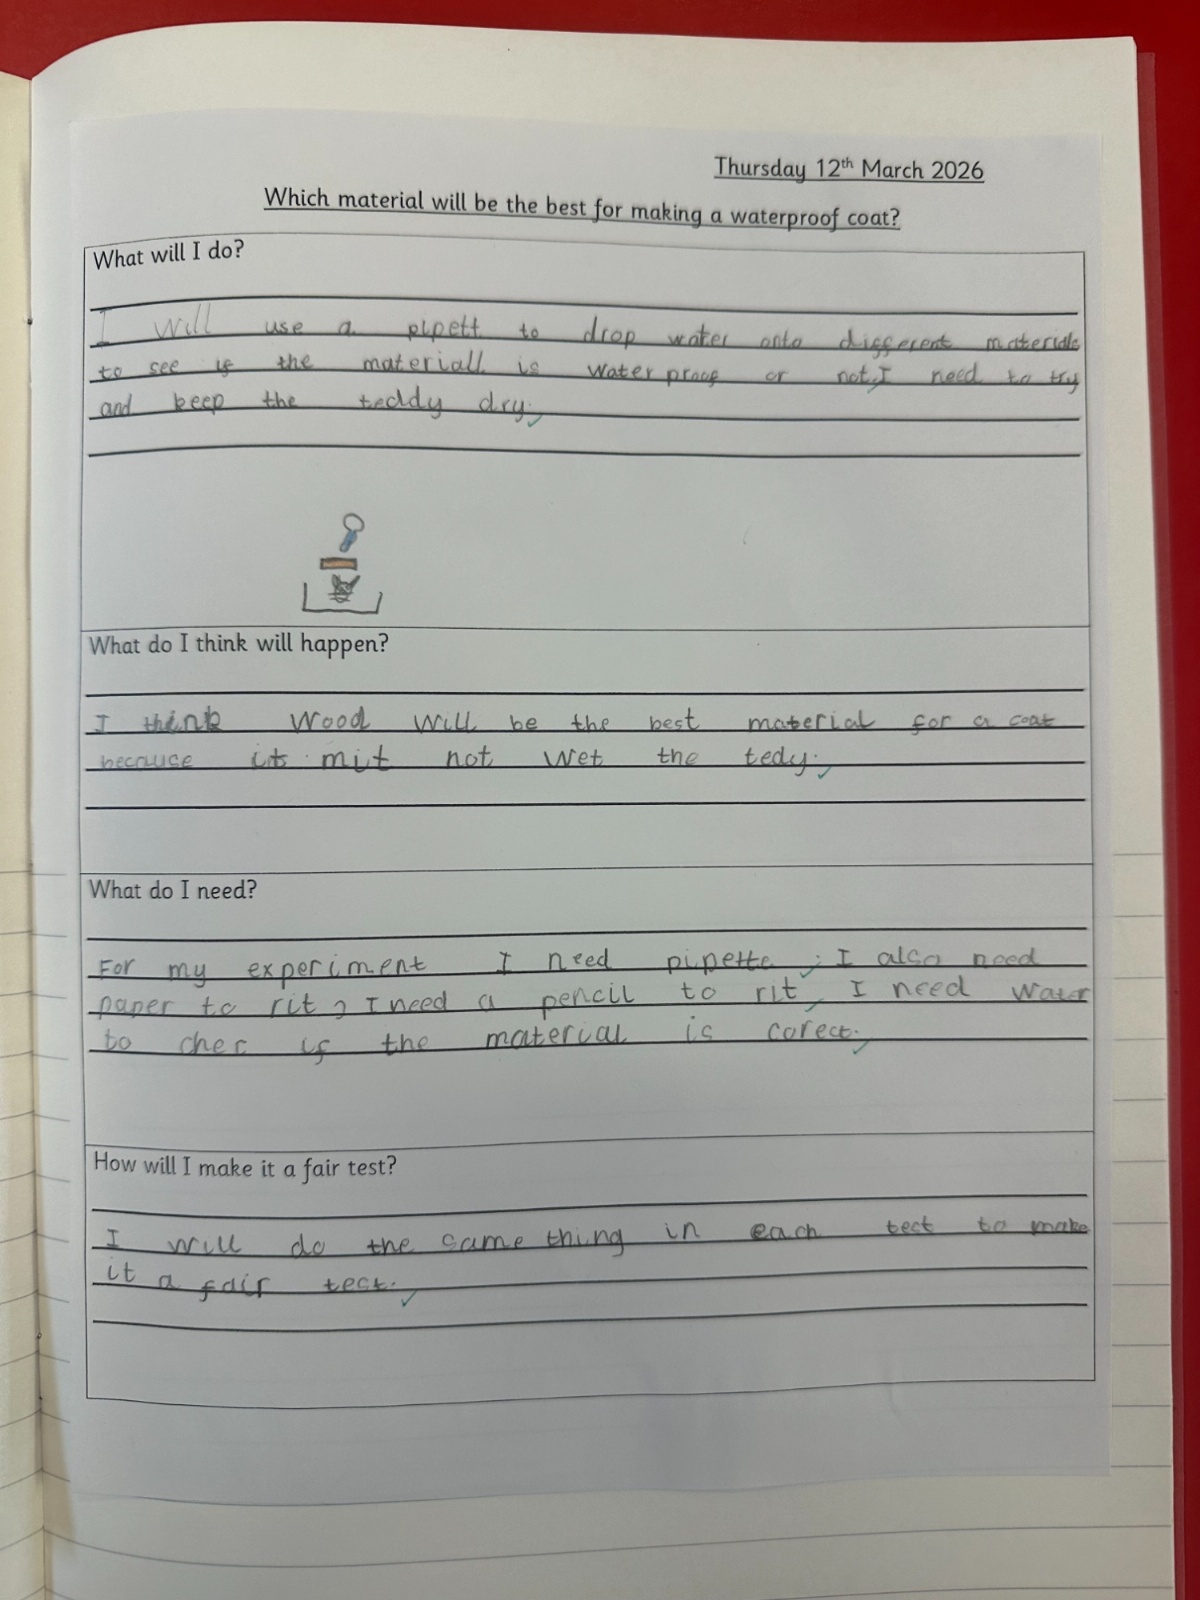 Thursday 12th March 2026
Which material will be the best for making a waterproof coat?
What will I do?
I will use a pipett to drop water onto different materials
to see if the materiall is water proof or not, I need to try
and keep the teddy dry.
What do I think will happen?
I think wood will be the best material for a coat
because its mit not wet the tedy.
What do I need?
For my experiment I need pipette, I also need
paper to rit, I need a pencil to rit, I need water
to chec if the material is corect.
How will I make it a fair test?
I will do the same thing in each test to make
it a fair test.